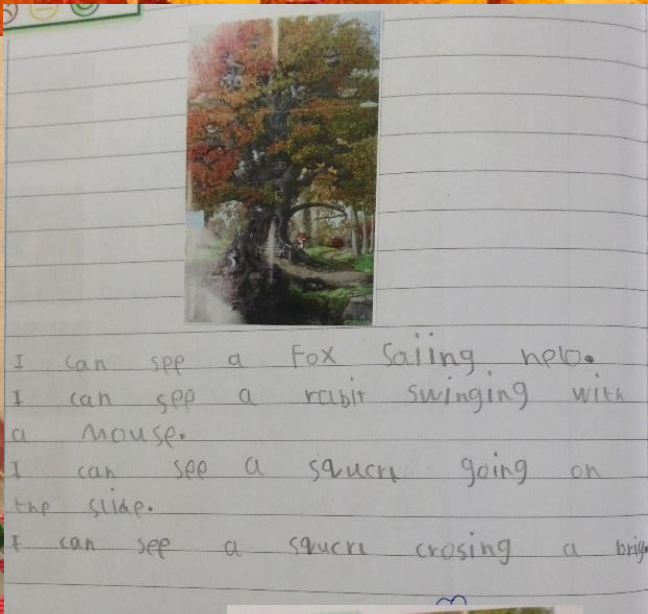 I can see a Fox Saiing helo.
I can see a rabit swinging with
a mouse.
I can see a squcrl going on
the slide.
I can see a squcrl crosing a brig